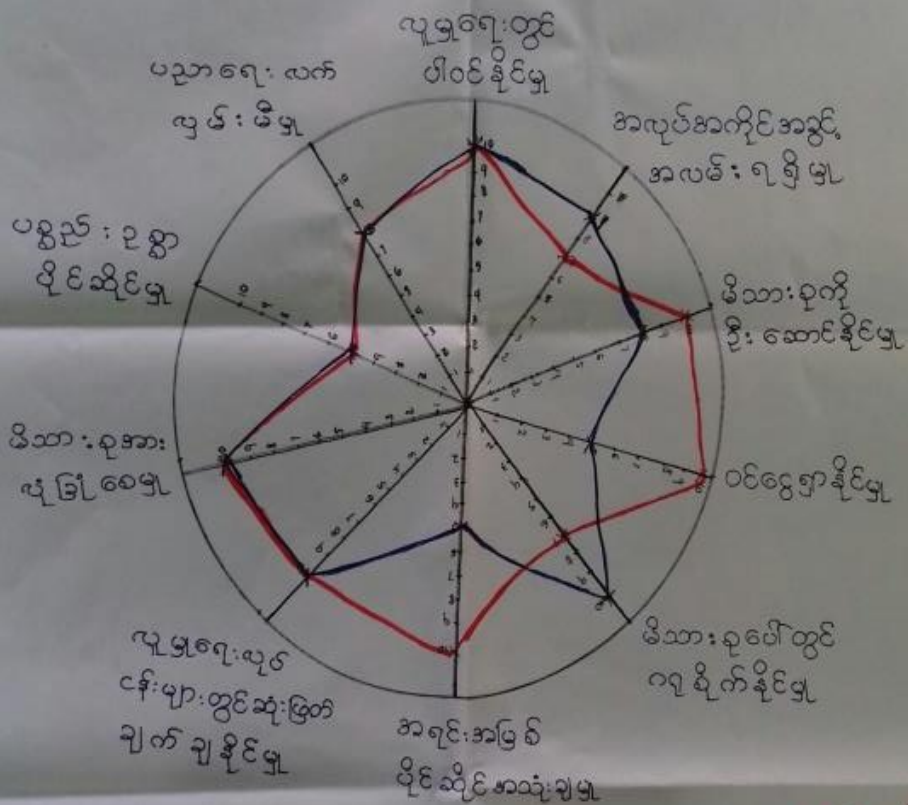 လူမှုရေးတွင်
ပါဝင်နိုင်မှု
အလုပ်အကိုင်အခွင့်
အလမ်းရရှိမှု
မိသားစုကို
ဦးဆောင်နိုင်မှု
ဝင်ငွေရှာနိုင်မှု
မိသားစုပေါ်တွင်
ဂရုစိုက်နိုင်မှု
အရင်းအမြစ်
ပိုင်ဆိုင်အသုံးချမှု
လူမှုရေးလုပ်
ငန်းများတွင်ဆုံးဖြတ်
ချက်ချနိုင်မှု
မိသားစုအား
လုံခြုံစေမှု
ပစ္စည်းဥစ္စာ
ပိုင်ဆိုင်မှု
ပညာရေးလက်
လှမ်းမီမှု